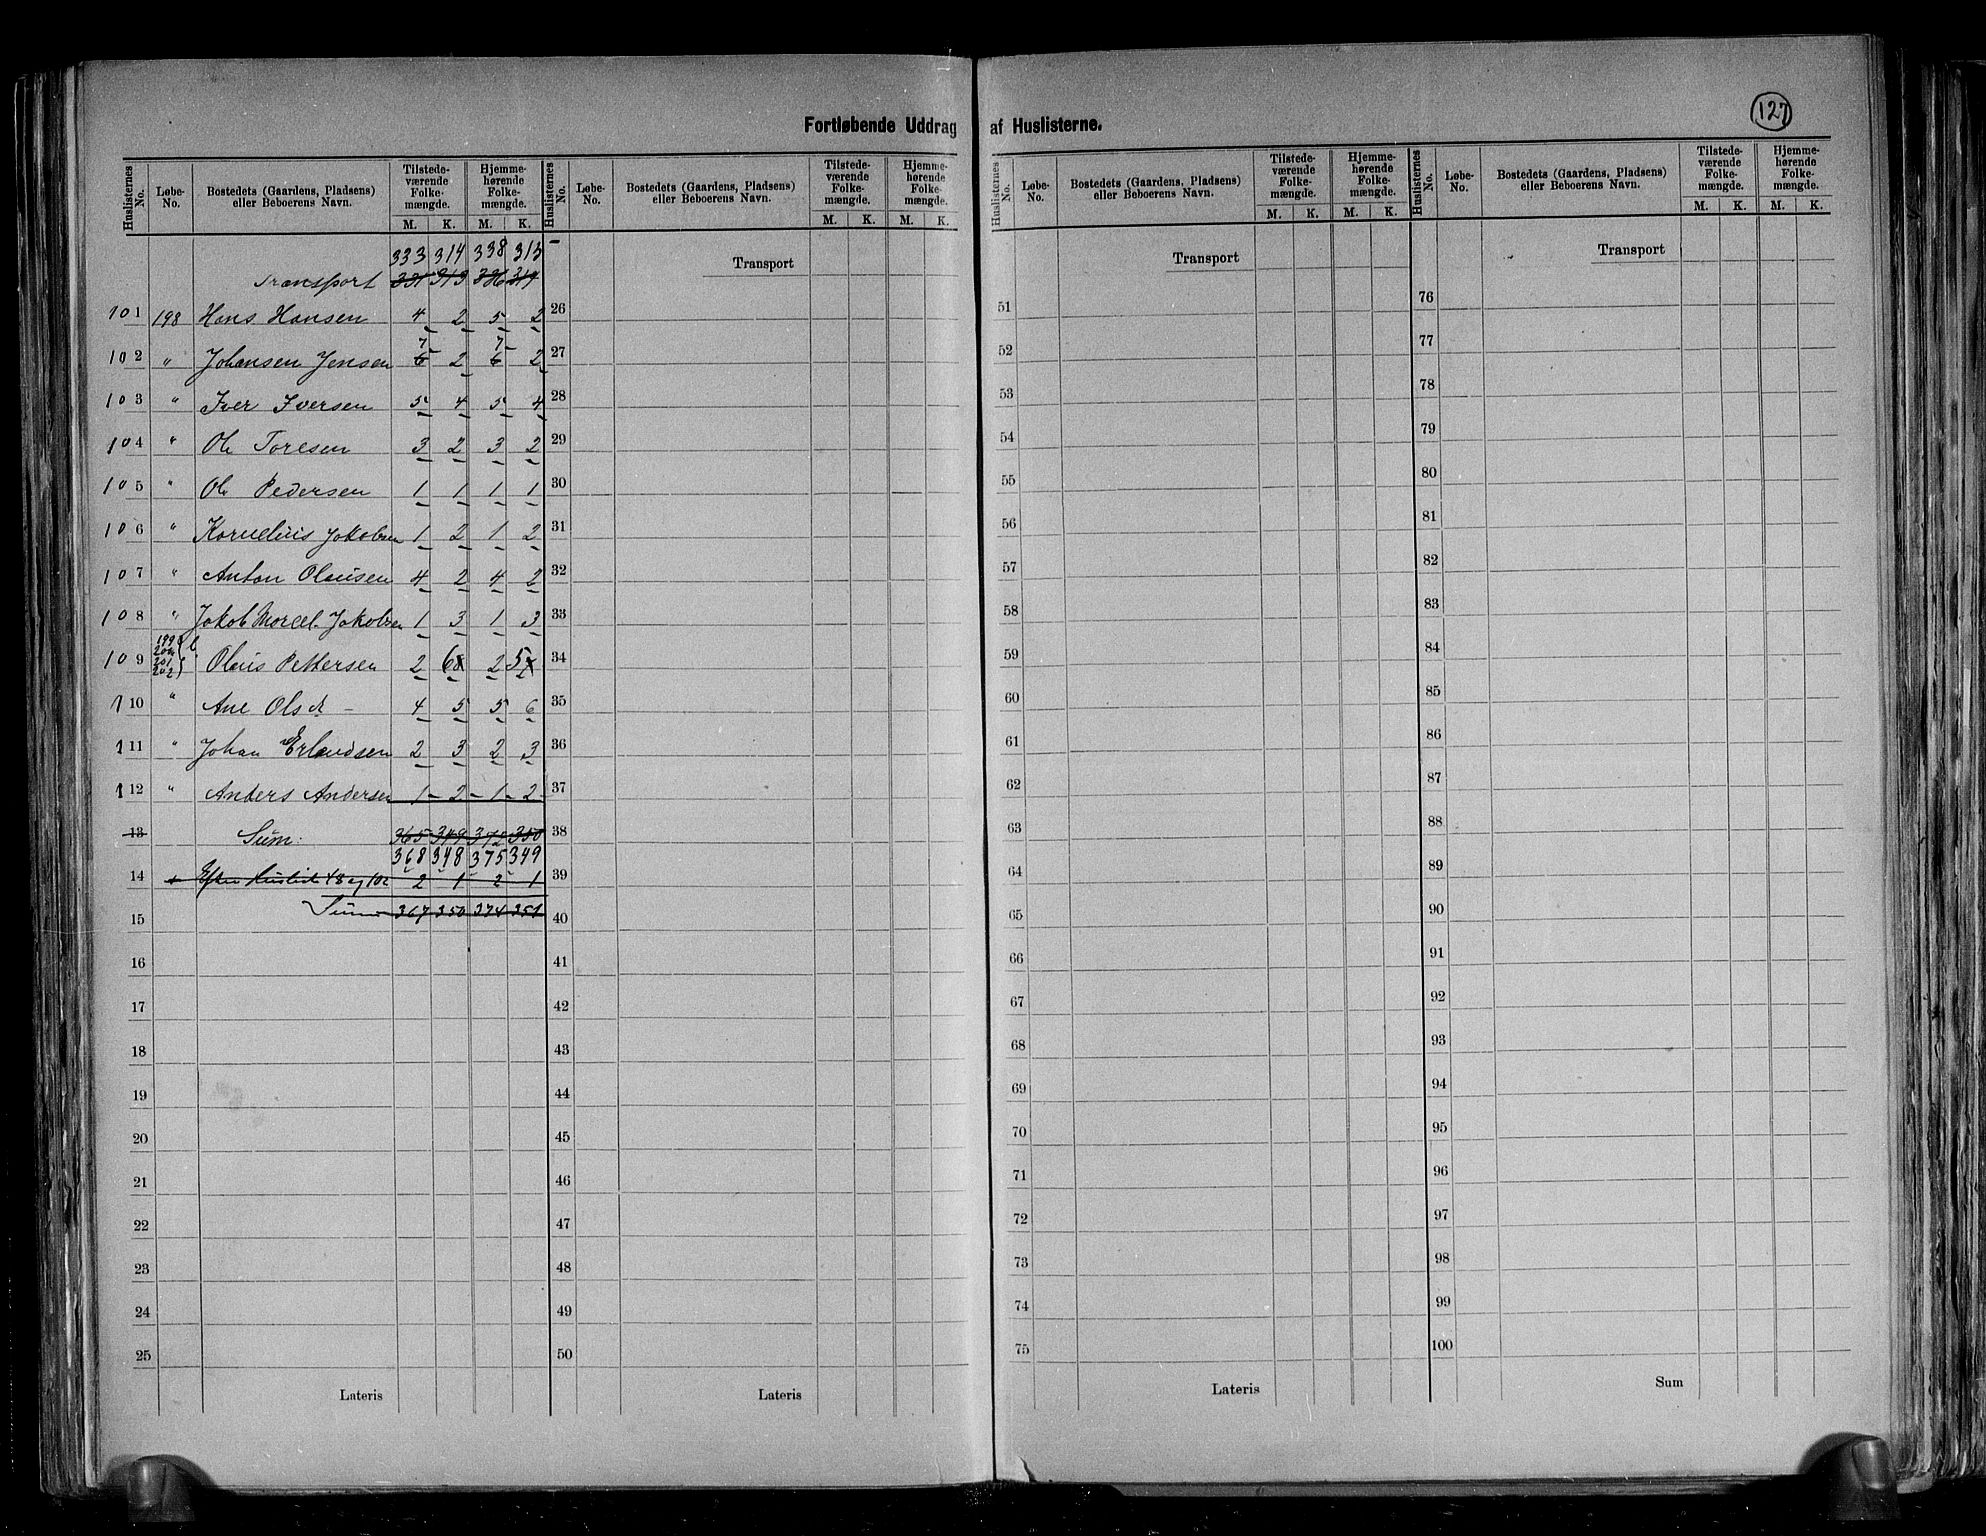 127
Fortløbende Uddrag af Huslisterne.
Huslisternes No. Løbe-No. Bostedets (Gaardens, Pladsens) eller Beboerens Navn. Tilstedeværende Folkemængde. M. K. Hjemmehørende Folkemængde. M. K.
333 314 338 315
Transport 331 313 336 314
101 198 Hans Hansen 4 2 5 2
102 " Johansen Jensen 7 6 2 7 6 2
103 " Iver Iversen 5 4 5 4
104 " Ole Toresen 3 2 3 2
105 " Ole Pedersen 1 1 1 1
106 " Kornelius Jakobsen 1 2 1 2
107 " Anton Olausen 4 2 4 2
108 " Jakob Morcel. Jakobsen 1 3 1 3
109 199 200 201 202 Olaus Pettersen 2 6 2 5
110 " Ane Olsd. 4 5 5 6
111 " Johan Erlandsen 2 3 2 3
112 " Anders Andersen 1 2 1 2
13 Sum: 365 349 372 350
368 348 375 349
14 + Efter Huslist 48 og 102 2 1 2 1
15 Sum 367 350 374 351
16
17
18
19
20
21
22
23
24
25
Lateris
Huslisternes No. Løbe-No. Bostedets (Gaardens, Pladsens) eller Beboerens Navn. Tilstedeværende Folkemængde. M. K. Hjemmehørende Folkemængde. M. K.
Transport
26
27
28
29
30
31
32
33
34
35
36
37
38
39
40
41
42
43
44
45
46
47
48
49
50
Lateris
Huslisternes No. Løbe-No. Bostedets (Gaardens, Pladsens) eller Beboerens Navn. Tilstedeværende Folkemængde. M. K. Hjemmehørende Folkemængde. M. K.
Transport
51
52
53
54
55
56
57
58
59
60
61
62
63
64
65
66
67
68
69
70
71
72
73
74
75
Lateris
Huslisternes No. Løbe-No. Bostedets (Gaardens, Pladsens) eller Beboerens Navn. Tilstedeværende Folkemængde. M. K. Hjemmehørende Folkemængde. M. K.
Transport
76
77
78
79
80
81
82
83
84
85
86
87
88
89
90
91
92
93
94
95
96
97
98
99
100
Sum